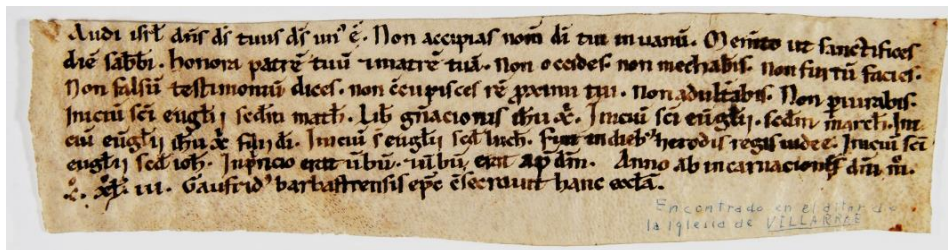 Audi isrł dñs ds̄ tuus ds̄ unꝰ ē. Non accipias nom̄ dī tui in uanū. Memto ut sanctifices
diē sabbī. honora patrē tuū ⁊ matrē tuā. Non occides. non mechabis. non furtū facies.
Non falsū testimoniū dices. non c̄cupisces rē proximi tui. Non adultabis. Non piurabis.
Iniciū sc̄i eugłij scdm̄ math̄. Lib̄ gn̄acionis ih̄u x̄. Iniciū sc̄i eūgłij. scdm̄ march̄. Ini
ciū eūgłij ih̄u x̄ filij di. Iniciū s eugłij scd̄ luch̄. fuit in diebꝰ herodis regis iudee. Iniciū sc̄i
eugłij scd̄ ioh̄. In pncio erat ūbū. ⁊ ūbū erat ap̄ dm̄. Anno ab incarnacione dn̄i m̄.
c̄. xł iii. Gaufridꝰ barbastrensis ep̄c c̄secrauit hanc eccłā.
Encontrado en el altar de
la Iglesia de VILLARRUE